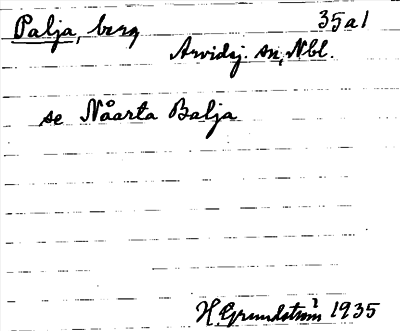 Palja, berg 35a1
Arvidsj. sn, Nbl.
se Nåarta Balja
H. Grundström 1935